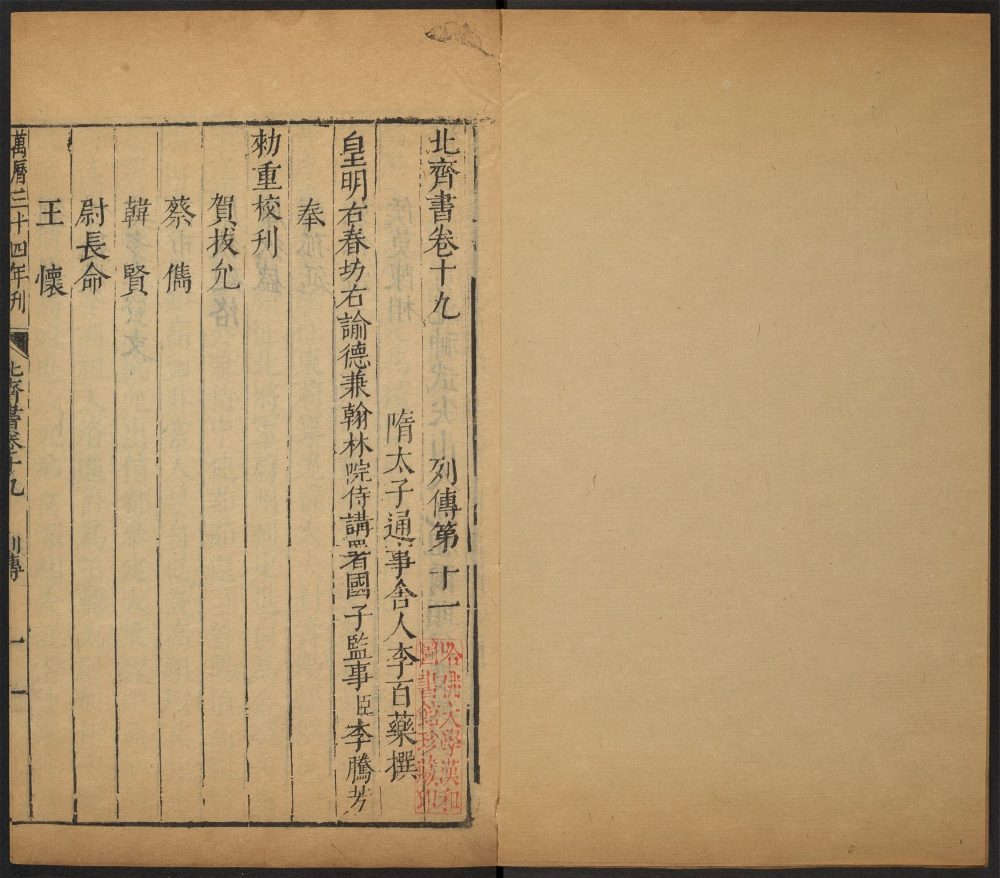 北齊書卷十九 列傳第十一
隋太子通事舍人李百藥撰
皇明右春坊右諭德兼翰林院侍講署國子監事臣李騰芳
奉
勑重校刊
賀拔允
蔡儁
韓賢
尉長命
王懷
萬曆三十四年刊 北齊書卷十九 列傳 一
哈佛大學漢和
圖書館珍藏印